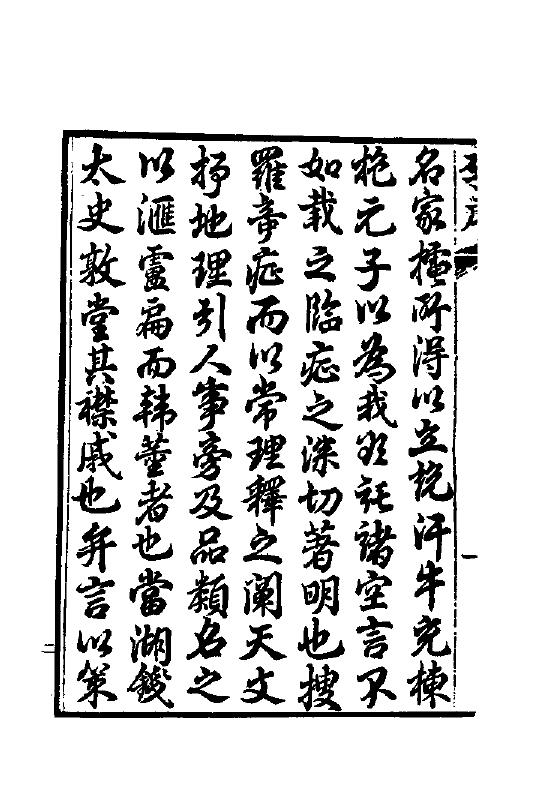 名家檀所得以立說汗牛充棟
枕元子以為我欲託諸空言不
如載之臨症之深切著明也搜
羅奇症而以常理釋之闡天文
抒地理引人事旁及品類名之
以滙靈扁而韩董者也當湖錢
太史敦堂其襟戚也弁言以策
二